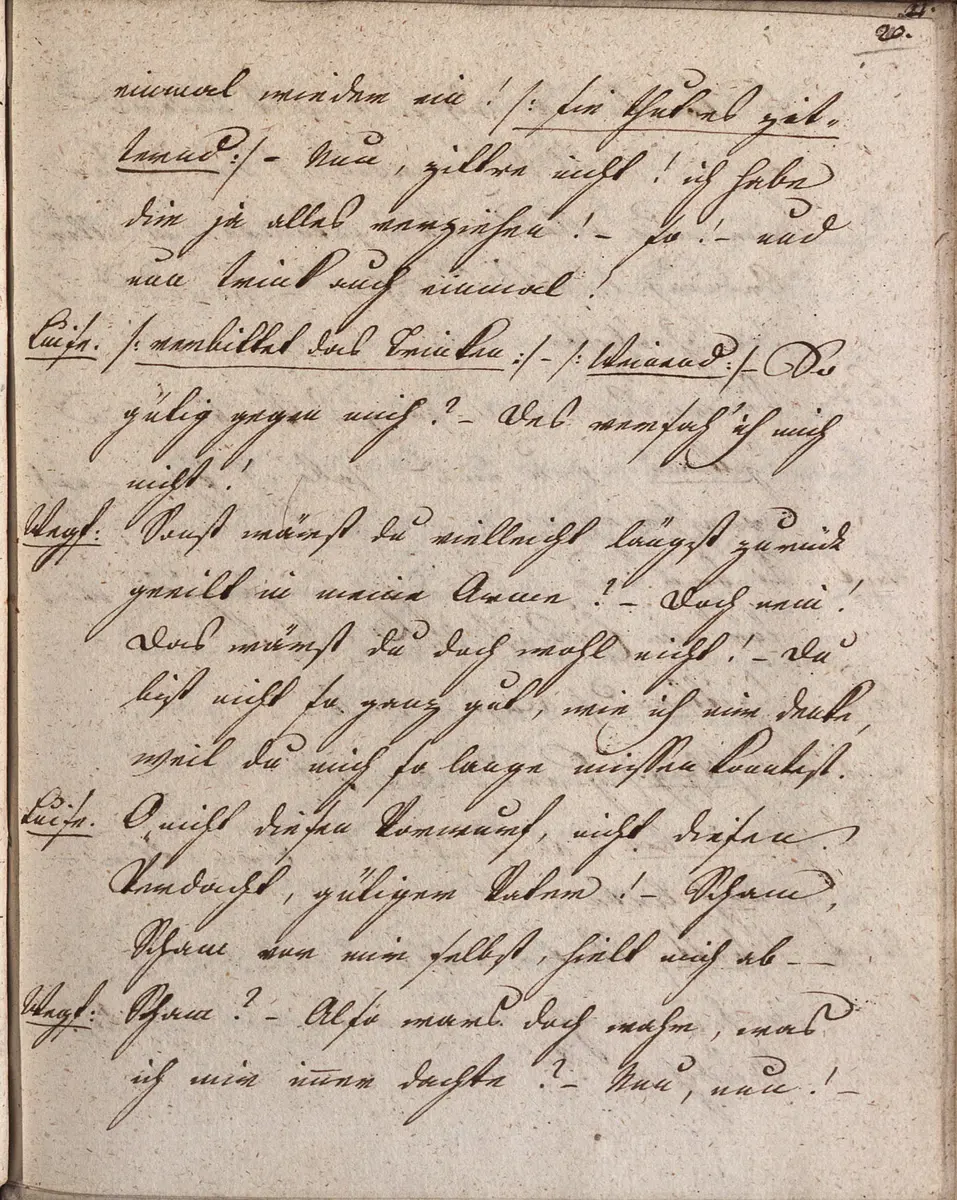 20.
einmal wieder ein! /: sie thut es zit-
ternd :/ - Nun, zittre nicht! ich habe
dir ja alles verziehen! - so! - und
nun trink auch einmal!
Luise. /: verbittet das Trinken :/ - /: Weinend :/ - So
gütig gegen mich? - Des versah' ich mich
nicht!
Wegf: Sonst wärst du vielleicht längst zurück
geeilt in meine Arme? - Doch nein!
Das wärst du doch wohl nicht! - Du
bist nicht so ganz gut, wie ich mir denke,
weil du mich so lange missen konntest.
Luise. O nicht diesen Vorwurf, nicht diesen
Verdacht, gütiger Vater! - Scham,
Scham vor mir selbst, hielt mich ab - -
Wegf: Scham? - Also wars doch wahr, was
ich mir im̄er dachte? - Nun, nun! -